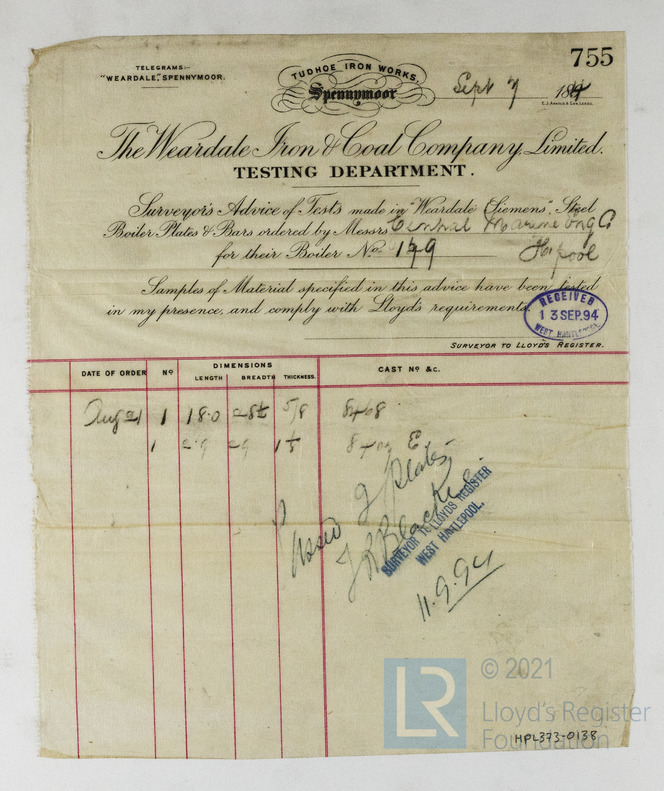 755
TELEGRAMS:-
"WEARDALE", SPENNYMOOR.
TUDHOE IRON WORKS,
Spennymoor
Sept 7 1894
E.J. ARNOLD & SON, LEEDS.
The Weardale Iron & Coal Company, Limited.
TESTING DEPARTMENT.
Surveyor's Advice of Tests made in "Weardale Siemens", Steel
Boiler Plates & Bars ordered by Messrs Central Marine Eng Co
for their Boiler No. 149 H'pool
Samples of Material specified in this advice have been tested
in my presence, and comply with Lloyd's requirements.
RECEIVED
13 SEP. 94
WEST HARTLEPOOL
SURVEYOR TO LLOYD'S REGISTER.
DATE OF ORDER No DIMENSIONS CAST No &c.
LENGTH BREADTH THICKNESS.
Aug 21 1 18.0 5/8 8468
1 2.9 29 E
Passed 2 Plates
SURVEYOR TO LLOYDS REGISTER
WEST HARTLEPOOL.
11.9.94
LR © 2021
Lloyd's Register
Foundation
HPL373-0138